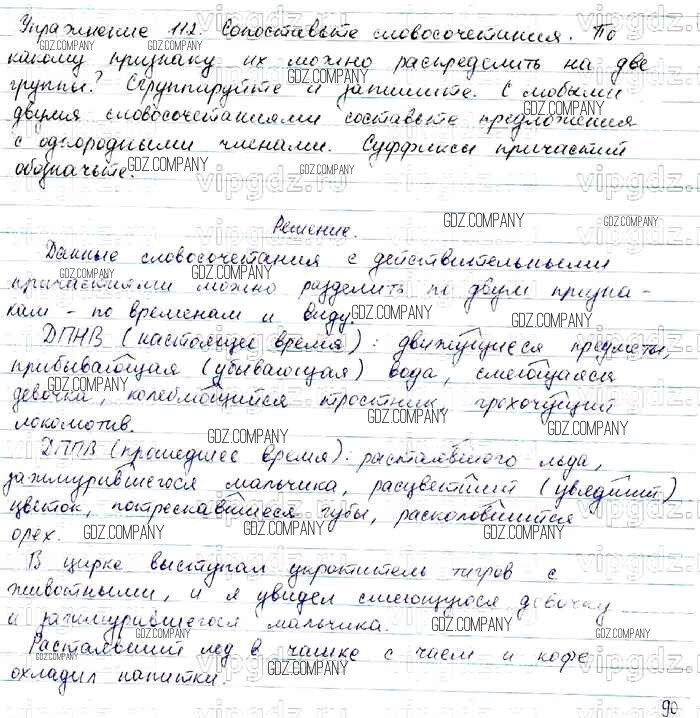 Упражнение 112. Сопоставьте словосочетания. По
какому признаку их можно распределить на две
группы? Сгруппируйте и запишите. С любыми
двумя словосочетаниями составьте предложения
с однородными членами. Суффиксы причастий
обозначьте.
Решение.
Данные словосочетания с действительными
причастиями можно разделить по двум призна-
кам - по временам и виду.
ДПНВ (настоящее время): движущиеся предметы,
прибывающая (убывающая) вода, смеющаяся
девочка, колеблющийся тростник, грохочущий
локомотив.
ДППВ (прошедшее время): растаявшего льда,
зажмурившегося мальчика, расцветший (увядший)
цветок, потрескавшиеся губы, расколовшийся
орех.
В цирке выступал укротитель тигров с
животными, и я увидел смеющуюся девочку
и зажмурившегося мальчика.
Растаявший лед в чашке с чаем и кофе
охладил напитки.
90